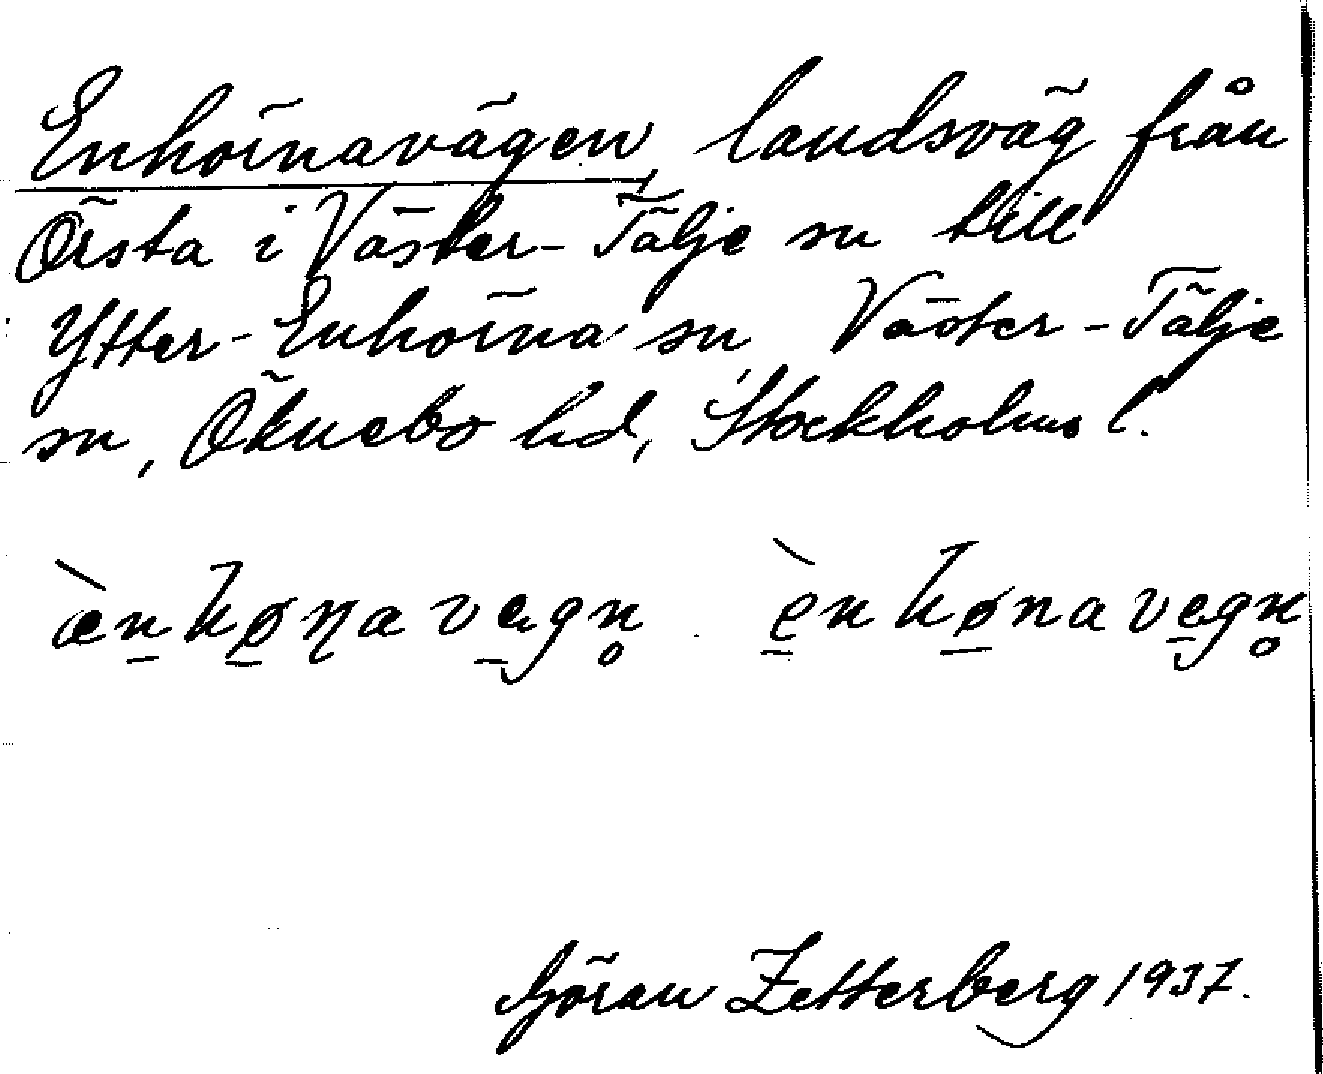 Enhörnavägen, landsväg från
Örsta i Väster-Tälje sn till
Ytter-Enhörna sn, Väster-Tälje
sn, Öknebo hd, Stockholms l.
æ̀nhøɳavegn̥ . ènhønavegn̥
Göran Zetterberg 1937.